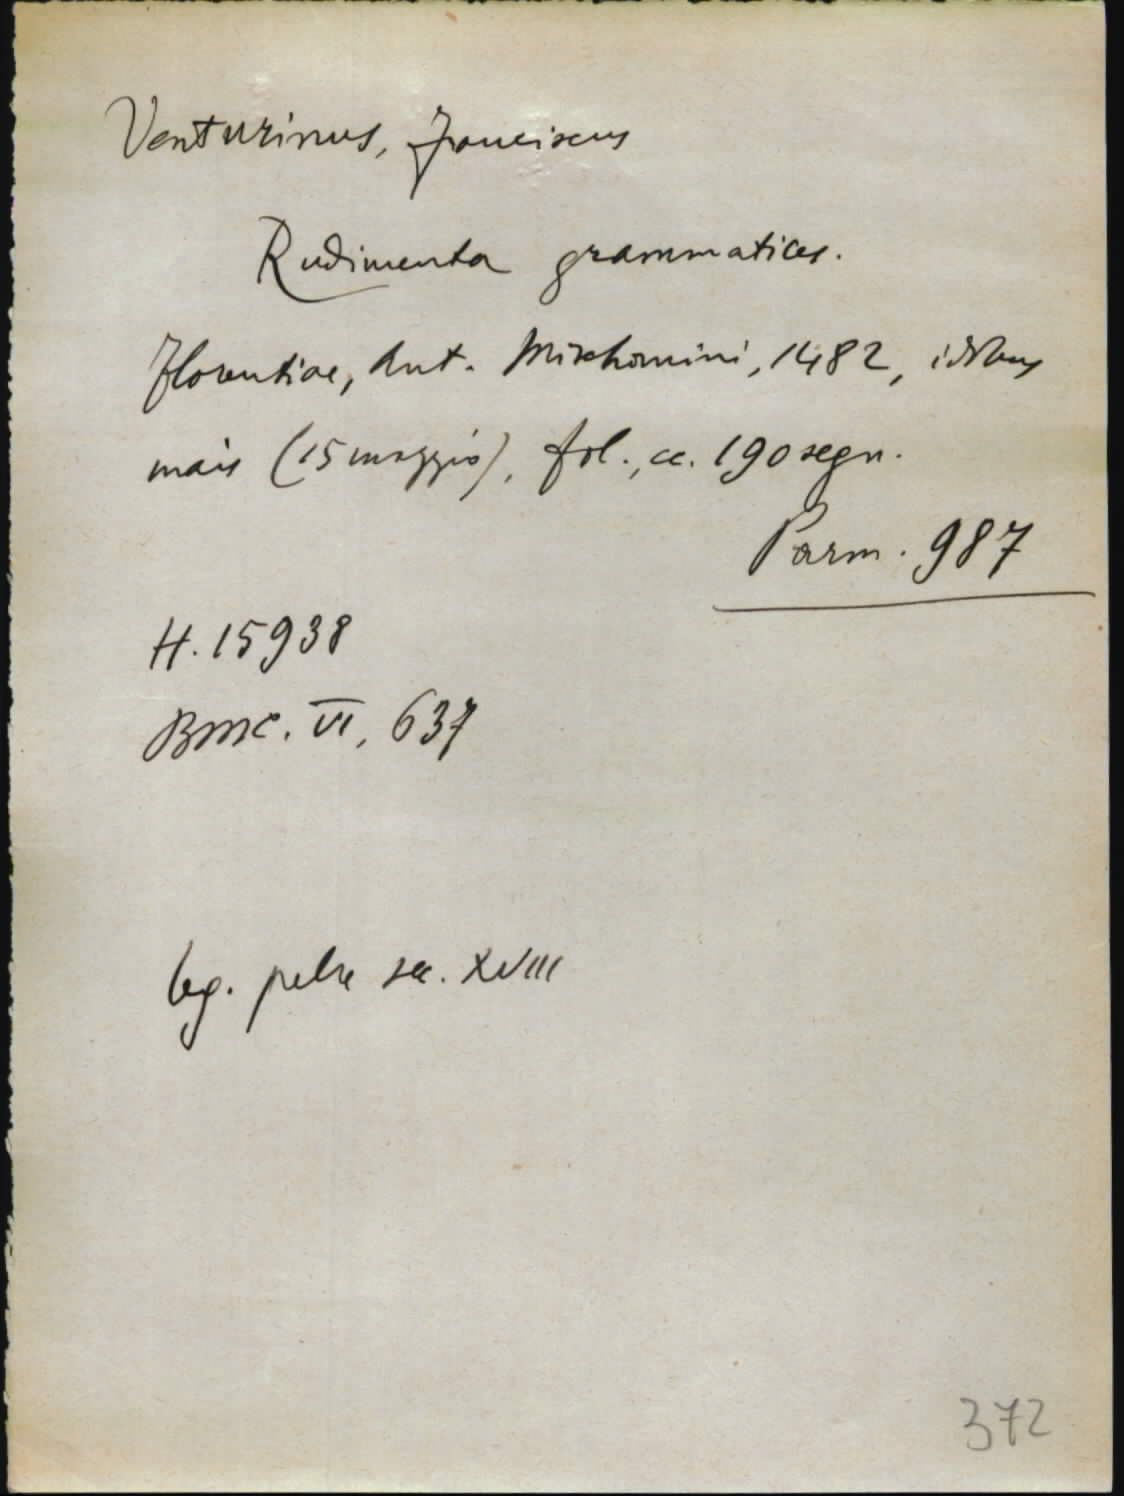 Venturinus, Franciscus
Rudimenta grammatices.
Florentiae, Ant. Mischomini, 1482, idibus
maiis (15 maggio), fol., cc. 190 segn.
Parm. 987
H. 15938
BMC. VI, 637
leg. pelle sec. XVIII
372